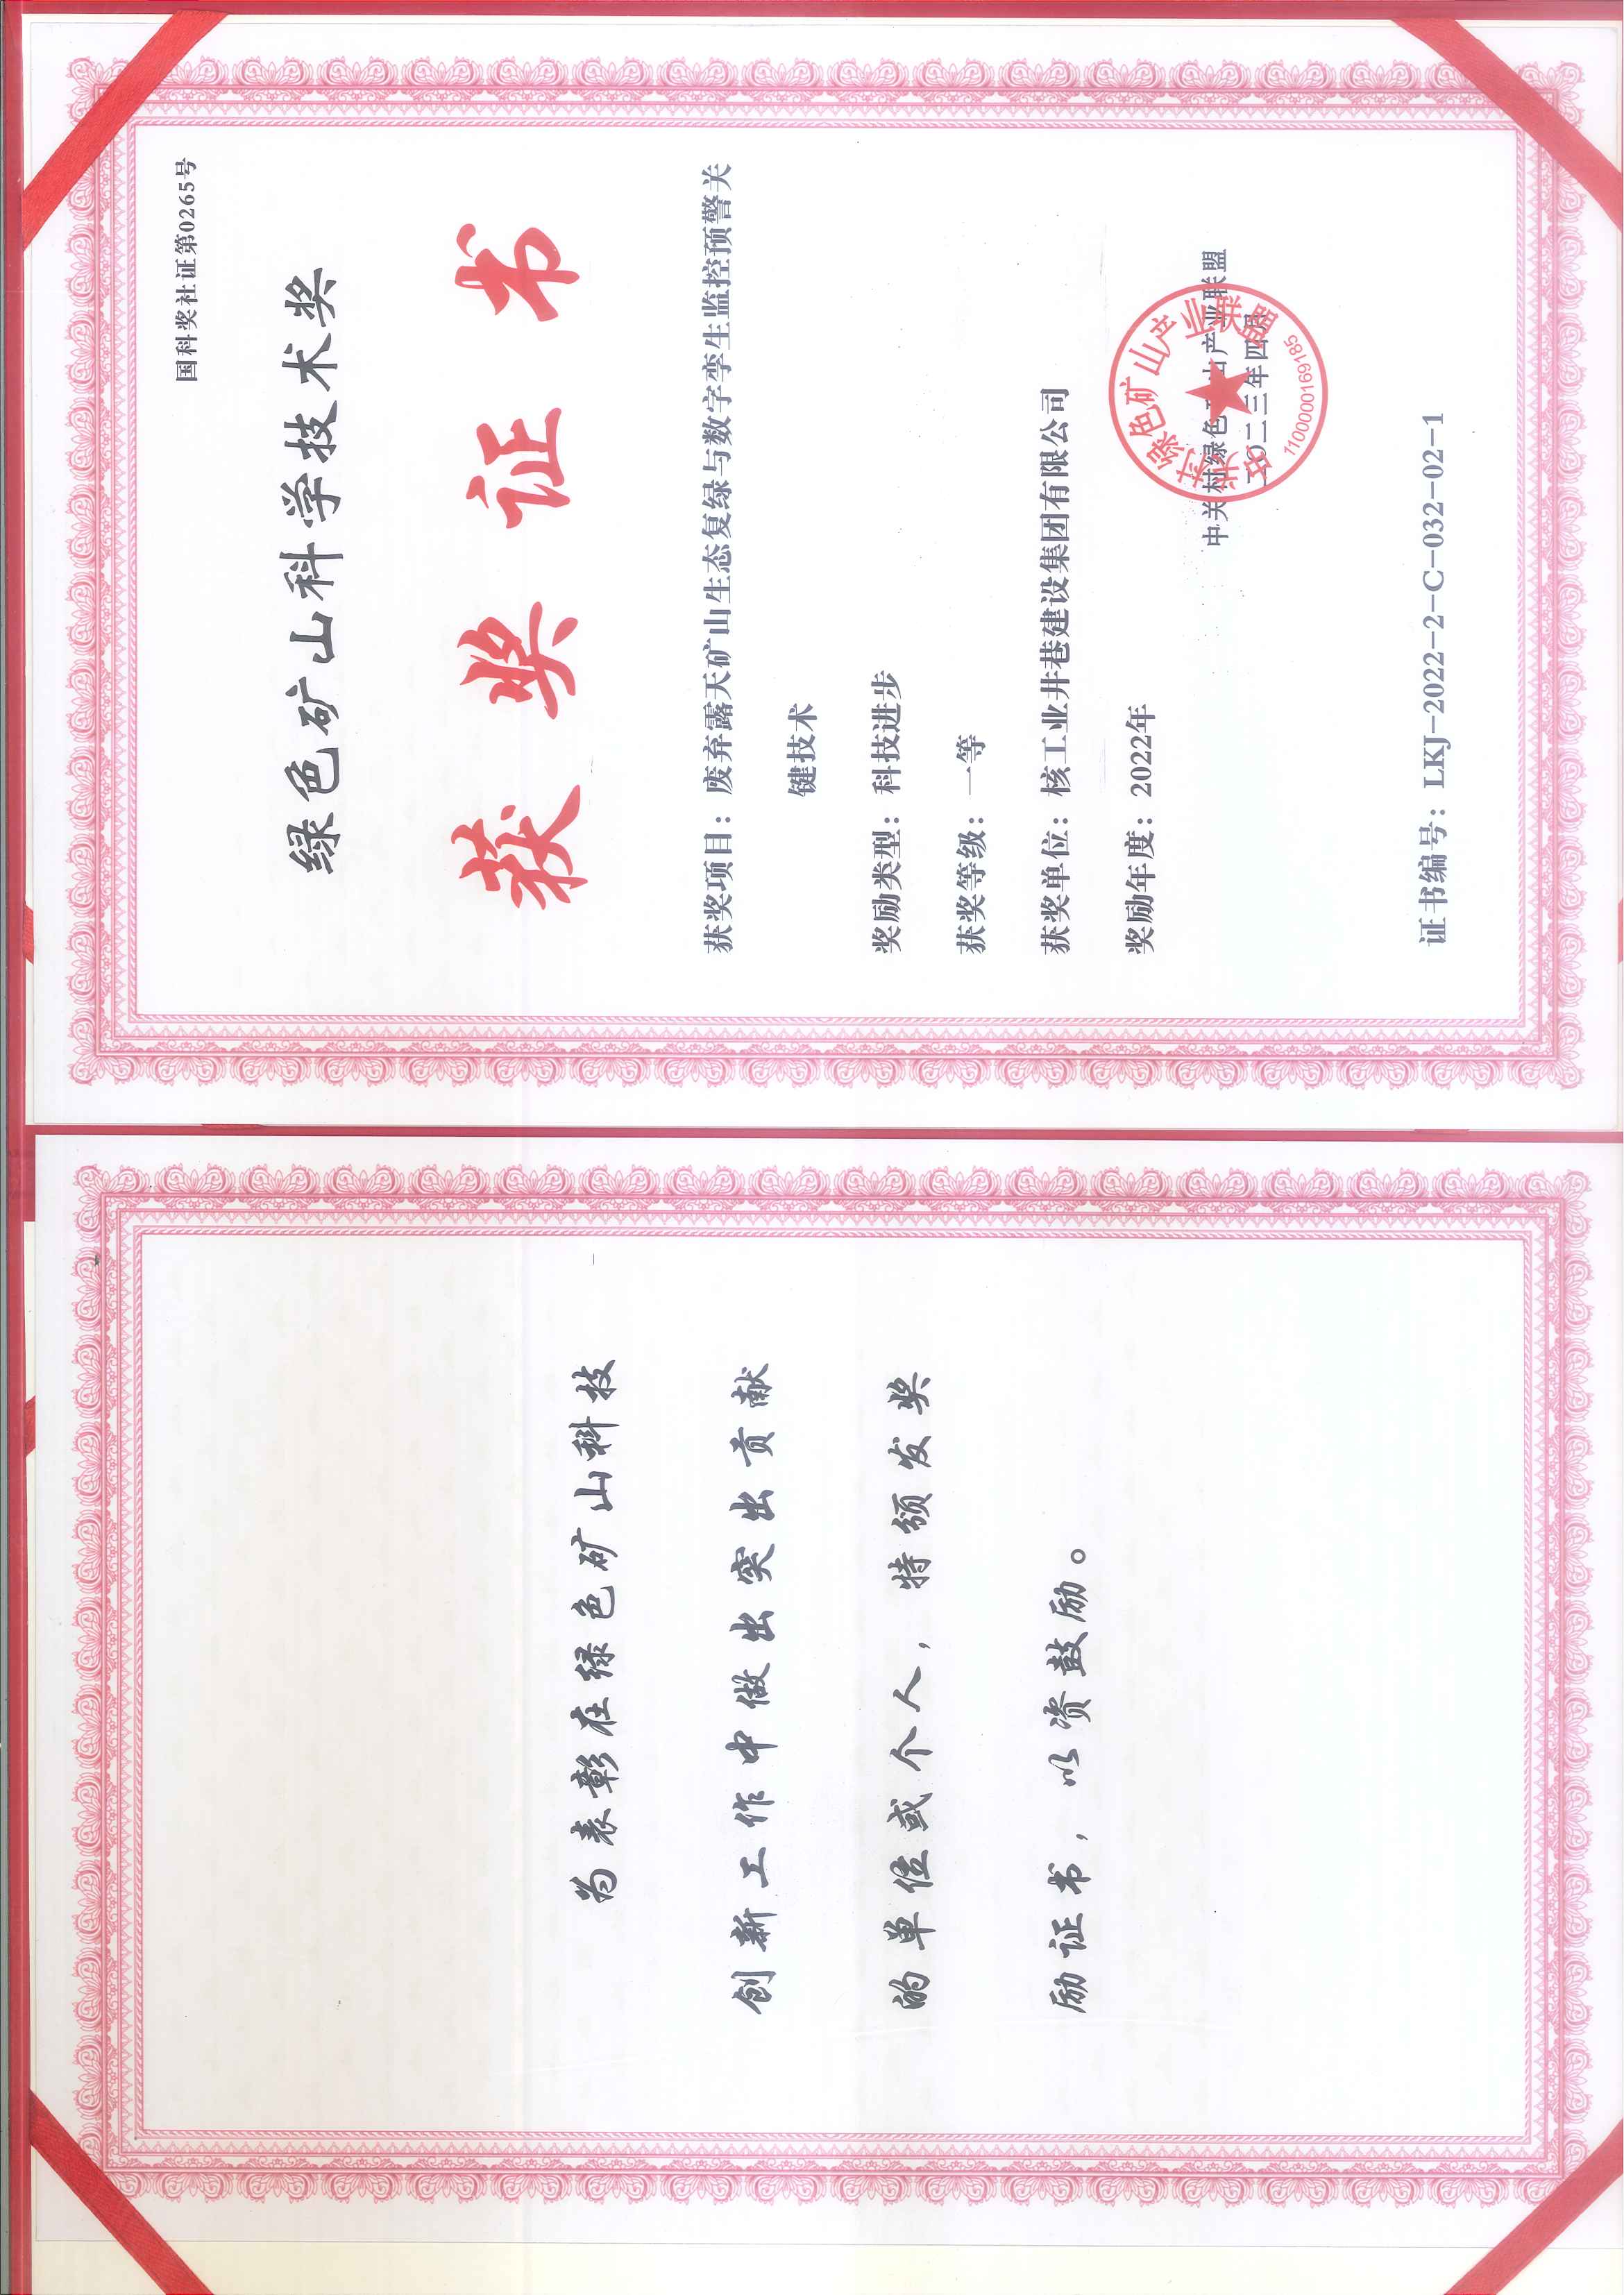 为表彰在绿色矿山科技
创新工作中做出突出贡献
的单位或个人，特颁发奖
励证书，以资鼓励。
国科奖社证第0265号
绿色矿山科学技术奖
获奖证书
获奖项目：废弃露天矿山生态复绿与数字孪生监控预警关
键技术
奖励类型：科技进步
获奖等级：一等
获奖单位：核工业井巷建设集团有限公司
奖励年度：2022年
中关村绿色矿山产业联盟
二〇二三年四月
中关村绿色矿山产业联盟
1100000169185
证书编号：LKJ-2022-2-C-032-02-1